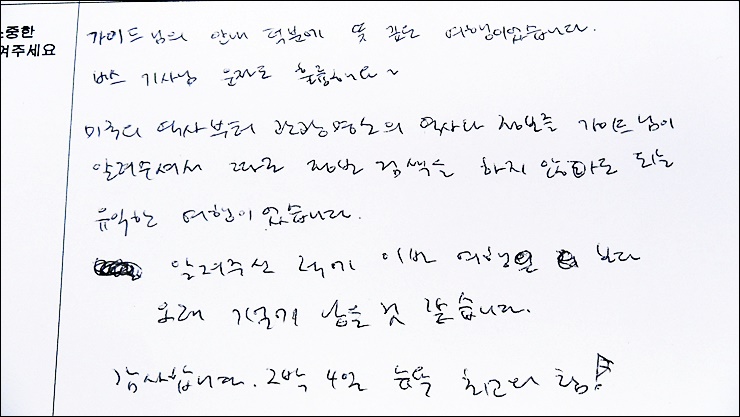 소중한
여주세요
가이드님의 안내 덕분에 뜻 깊은 여행이었습니다.
버스 기사님 운전도 훌륭해요~
미국의 역사부터 관광명소의 역사나 정보를 가이드님이
알려주셔서 따로 정보 검색을 하지 않아도 되는
유익한 여행이었습니다.
알려주신 이번 여행을 보다
오래 기억에 남을 것 같습니다.
감사합니다. 2박 4일 최고의